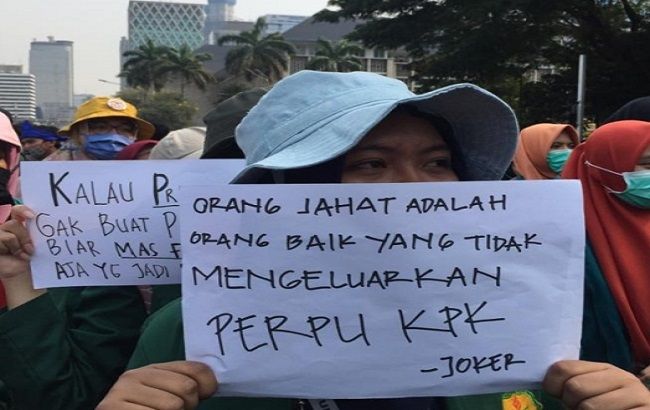 KALAU PR
GAK BUAT P
BIAR MAS
AJA YG JADI
ORANG JAHAT ADALAH
ORANG BAIK YANG TIDAK
MENGELUARKAN
PERPU KPK
-JOKER